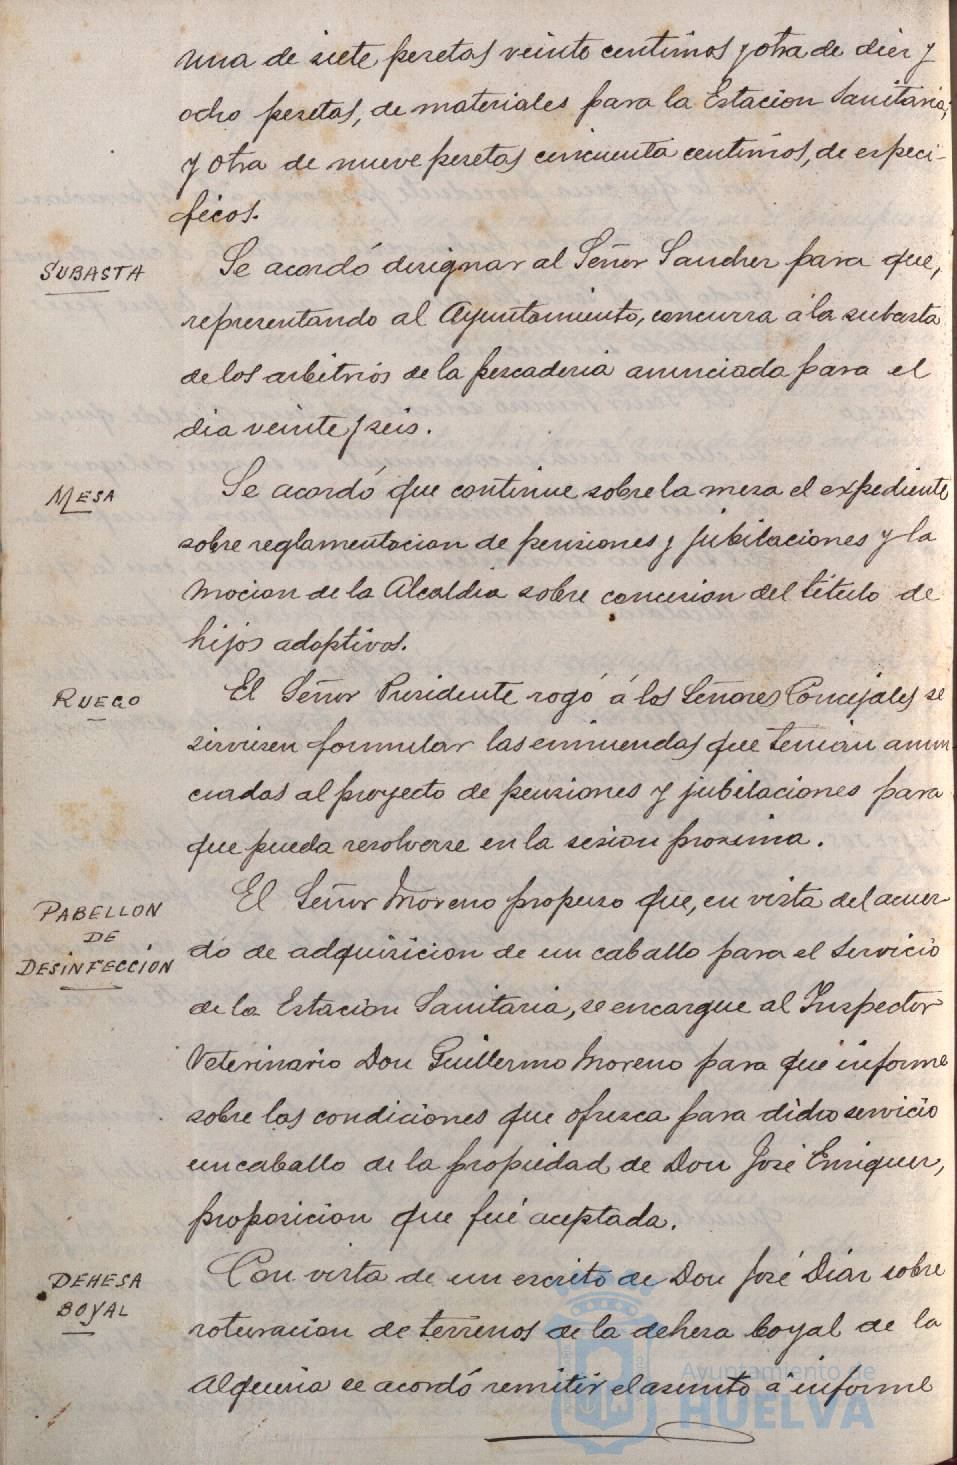 una de siete pesetas veinte centimos y otra de diez y
ocho pesetas, de materiales para la Estacion Sanitaria;
y otra de nueve pesetas cincuenta centimos, de especi-
ficos.
SUBASTA
Se acordó designar al Señor Sanchez para que,
representando al Ayuntamiento, concurra á la subasta
de los arbitrios de la pescaderia anunciada para el
dia veinte y seis.
MESA
Se acordó que continue sobre la mesa el expediente
sobre reglamentacion de pensiones y jubilaciones y la
mocion de la Alcaldia sobre concesion del titulo de
hijos adoptivos.
RUEGO
El Señor Presidente rogó á los Señores Concejales se
sirviesen formular las enmiendas que tenian anun-
ciadas al proyecto de pensiones y jubilaciones para
que pueda resolverse en la sesion proxima.
PABELLON
DE
DESINFECCION
El Señor Moreno propuso que, en vista del acuer-
do de adquisicion de un caballo para el servicio
de la Estacion Sanitaria, se encargue al Inspector
Veterinario Don Guillermo Moreno para que informe
sobre las condiciones que ofrezca para dicho servicio
un caballo de la propiedad de Don José Enriquez,
proposicion que fué aceptada.
DEHESA
BOYAL
Con vista de un escrito de Don José Diaz sobre
roturacion de terrenos de la dehesa boyal de la
Alqueria se acordó remitir el asunto á informe
Ayuntamiento de
HUELVA